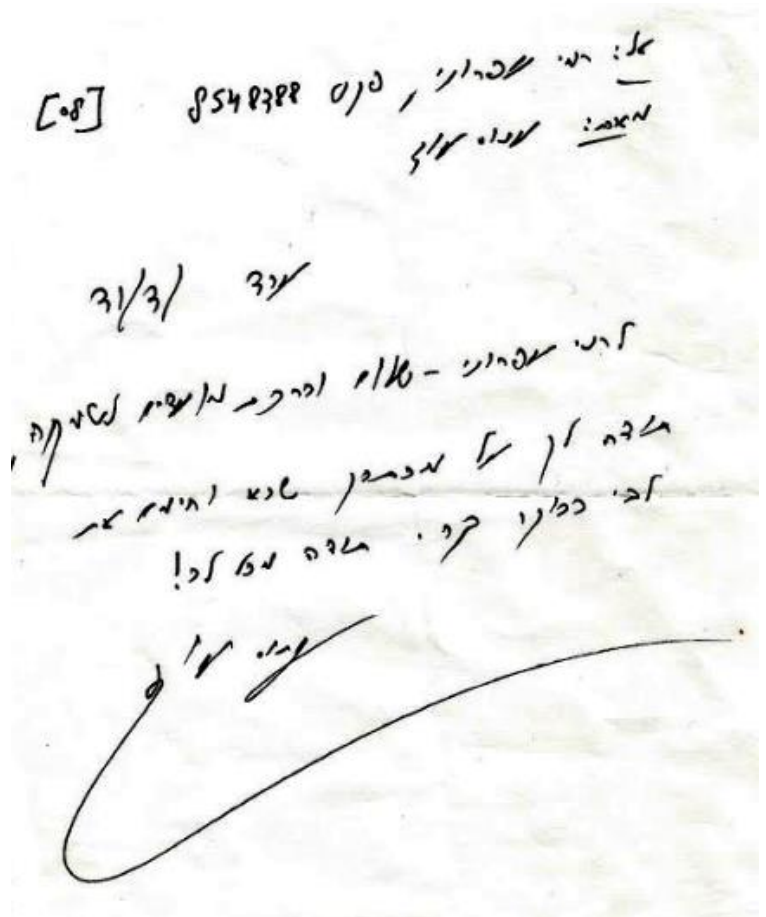 אל: רמי עפרוני, פקס 8548388 [08]
מאת: עמוס עוז
ערד
לרמי עפרוני – שלום וברכת מועדים לשמחה,
תודה לך על מכתבך שבא וחימם את
לבי בבוקר קר. תודה מכל לב!
עמוס עוז